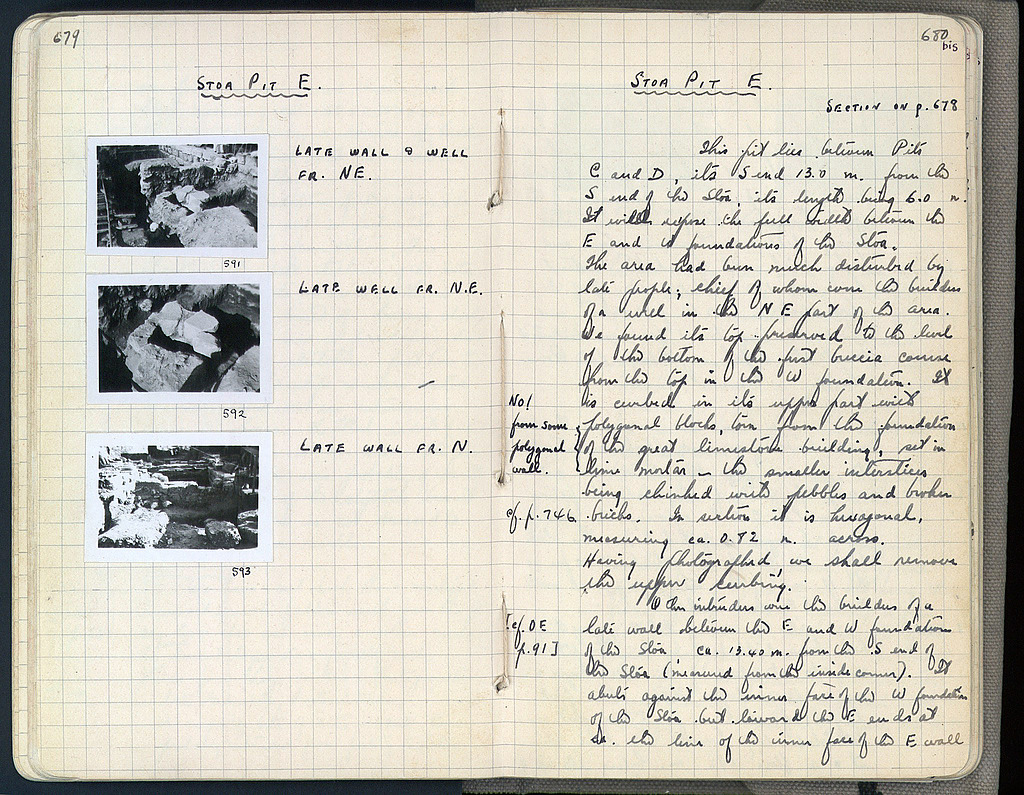 679
STOA PIT E.
LATE WALL & WELL
FR. NE.
591
LATE WELL FR. N.E.
592
LATE WALL FR. N.
593
680
bis
STOA PIT E.
SECTION ON p. 678
This pit lies between Pits
C and D, its S end 13.0 m. from the
S end of the Stoa, its length being 6.0 m.
It will expose the full width between the
E and W foundations of the Stoa.
The area had been much disturbed by
late people; chief of whom were the builders
of a well in the NE part of the area.
We found its top preserved to the level
of the bottom of the first breccia course
from the top in the W foundation. It
is curbed in its upper part with
polygonal blocks, torn from the foundation
of the great limestone building, set in
lime mortar – the smaller interstices
being chinked with pebbles and broken
bricks. In section it is hexagonal,
measuring ca. 0.72 m. across.
Having photographed, we shall remove
the upper curbing.
NO!
from some
polygonal
wall.
cf. p. 746
Other intruders were the builders of a
late wall between the E and W foundations
of the Stoa ca. 13.40 m. from the S end of
the Stoa (measured from the inside corner). It
abuts against the inner face of the W foundation
of the Stoa but toward the E ends at
ca. the line of the inner face of the E wall
[cf. OE
p. 91]